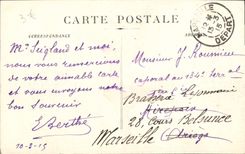 CARTE POSTALE
CORRESPONDANCE
Mr Seigland et moi,
nous vous remercions
de votre aimable carte
et vous envoyons notre
bon souvenir
E. Berthé
10-2-15
DÉPART
Monsieur J. Roumieu
caporal au 134e Terr al
Brasserie
28, Cours Belsunce
Marseille
Ariège